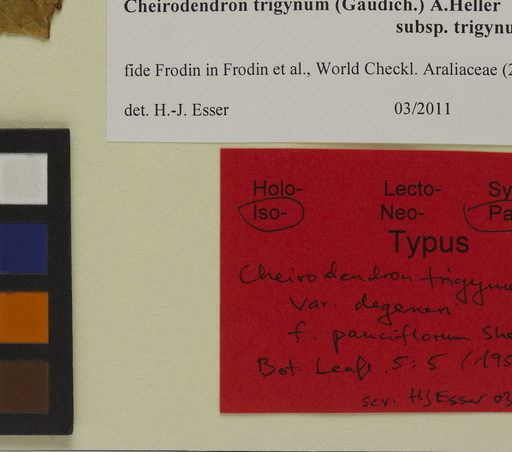 Cheirodendron trigynum (Gaudich.) A.Heller
subsp. trigynu
fide Frodin in Frodin et al., World Checkl. Araliaceae (2
det. H.-J. Esser 03/2011
Holo- Lecto- Sy
Iso- Neo- Pa
Typus
Cheirodendron trigynu
var. degeneri
f. pauciflorum She
Bot. Leafl. 5: 5 (195
scr. HJEsser 03